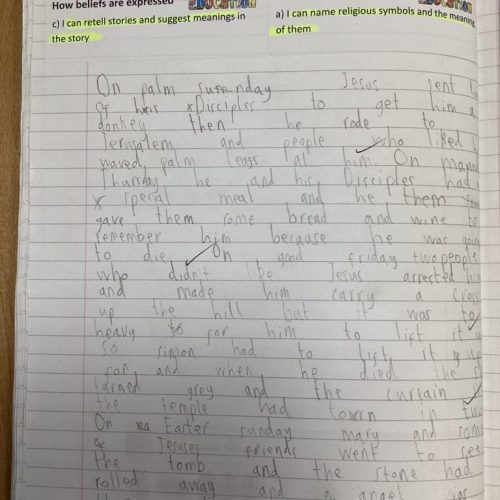 How beliefs are expressed
EDUCATION
c) I can retell stories and suggest meanings in
the story
a) I can name religious symbols and the meaning
of them
On palm sunday Jesus sent
of his Disciples to get him a
donkey then he rode to
Jerusalem and people who liked
waved palm leafs at him. On
Thursday he and his Disciples had
special meal and he them
gave them some bread and wine to
remember him because he was going
to die. On good friday two people
who didn't like Jesus arrested him
and made him carry a cross
up the hill but it was to
heavy for him to lift it
So simon had to lift it up
for and when he died the
turned grey and the curtain
the temple had toren in two
On Easter sunday mary and some
of Jesuses friends went to see
the tomb and the stone had
rolled away and a angel was